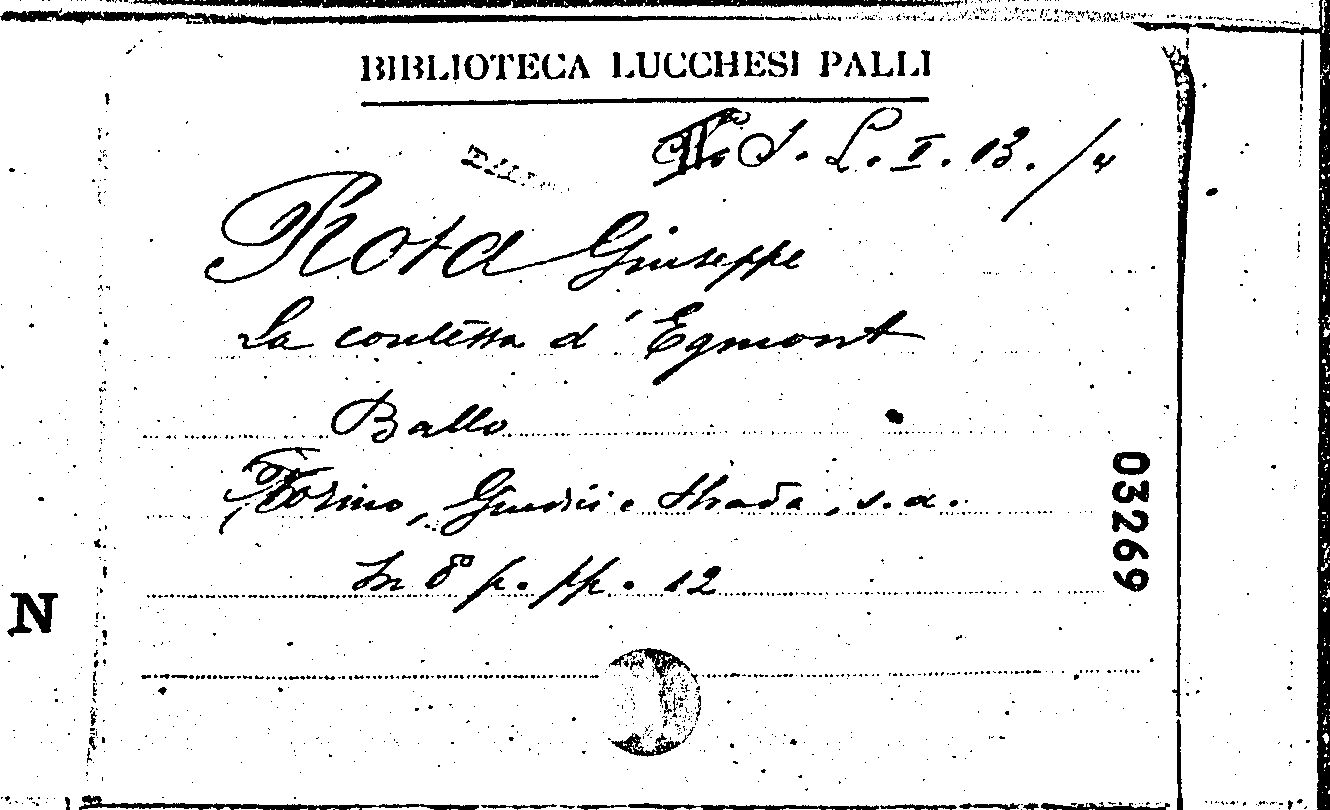 BIBLIOTECA LUCCHESI PALLI
L. I. 13. /4
Rota Giuseppe
La contessa d'Egmont
Ballo
Torino, Giudici e Strada, s. a.
In 8º p. pp. 12
03269
N